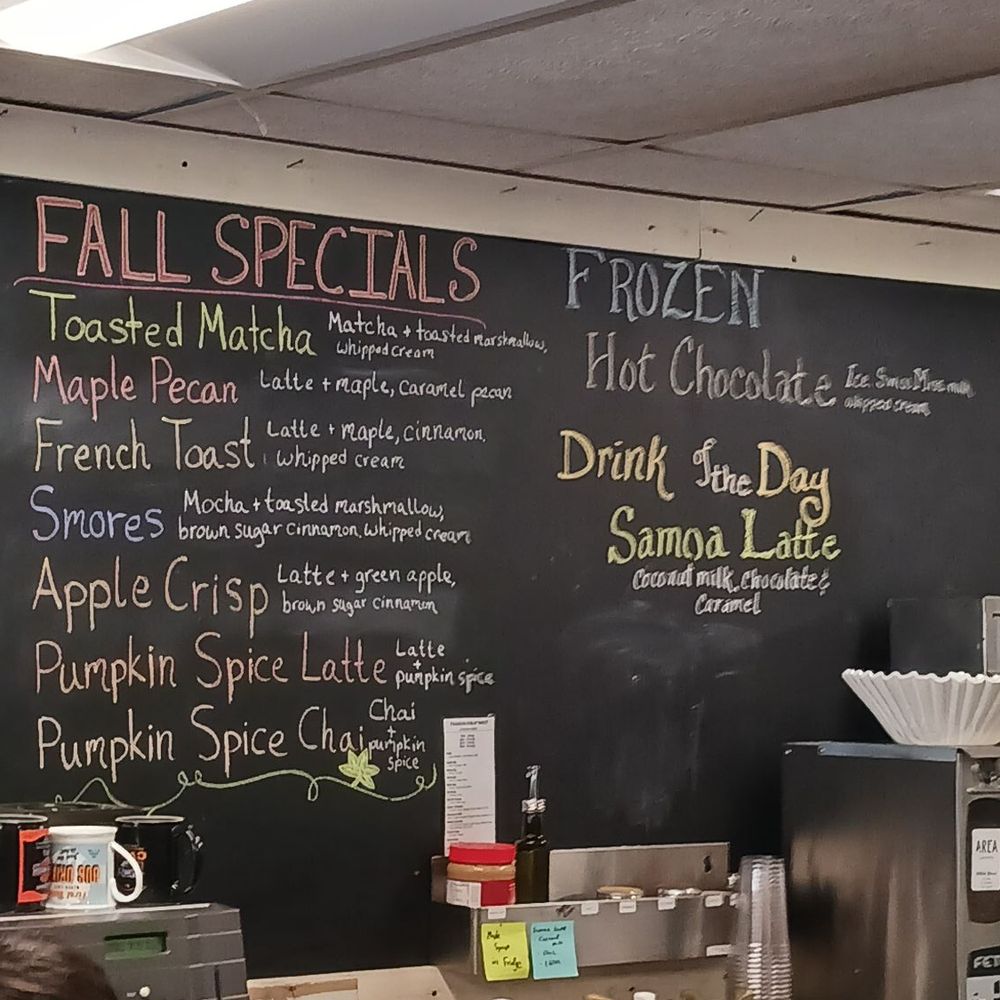 FALL SPECIALS
Toasted Matcha
Matcha + toasted marshmallow,
whipped cream
Maple Pecan
Latte + maple, caramel pecan
French Toast
Latte + maple, cinnamon,
whipped cream
Smores
Mocha + toasted marshmallow,
brown sugar cinnamon, whipped cream
Apple Crisp
Latte + green apple,
brown sugar cinnamon
Pumpkin Spice Latte
Latte
+
pumpkin spice
Pumpkin Spice Chai
Chai
+
pumpkin
spice
FROZEN
Hot Chocolate
Ice, Swiss Miss, milk
whipped cream
Drink of the Day
Samoa Latte
Coconut milk, Chocolate &
Caramel
Syrup
in Fridge
AREA